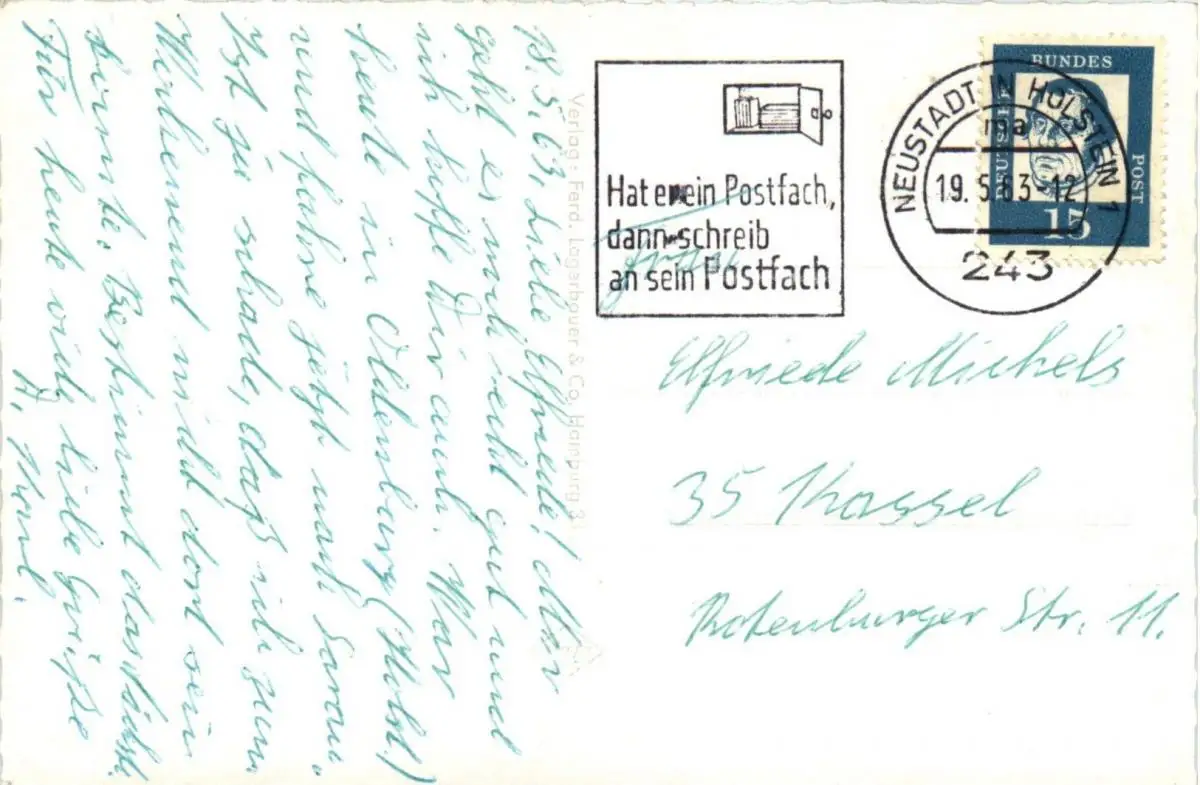 18.5.63. Liebe Elfriede! Mir
geht es noch recht gut und
ich hoffe Dir auch. War
heute in Oldenburg (Holst.)
und fahre jetzt nach
Ist zu schade, daß ich zum
Wochenend nicht dort sein
konnte. Bestimmt das nächste.
Für heute viele liebe Grüße
Karl.
Verlag: Ferd. Lagerbauer & Co, Hamburg
Hat er ein Postfach,
dann schreib
an sein Postfach
NEUSTADT IN HOLSTEIN 1
ma
19.5.63-12
243
DEUTSCHE BUNDES POST
15
Frau
Elfriede Michels
35 Kassel
Rotenburger Str. 11.